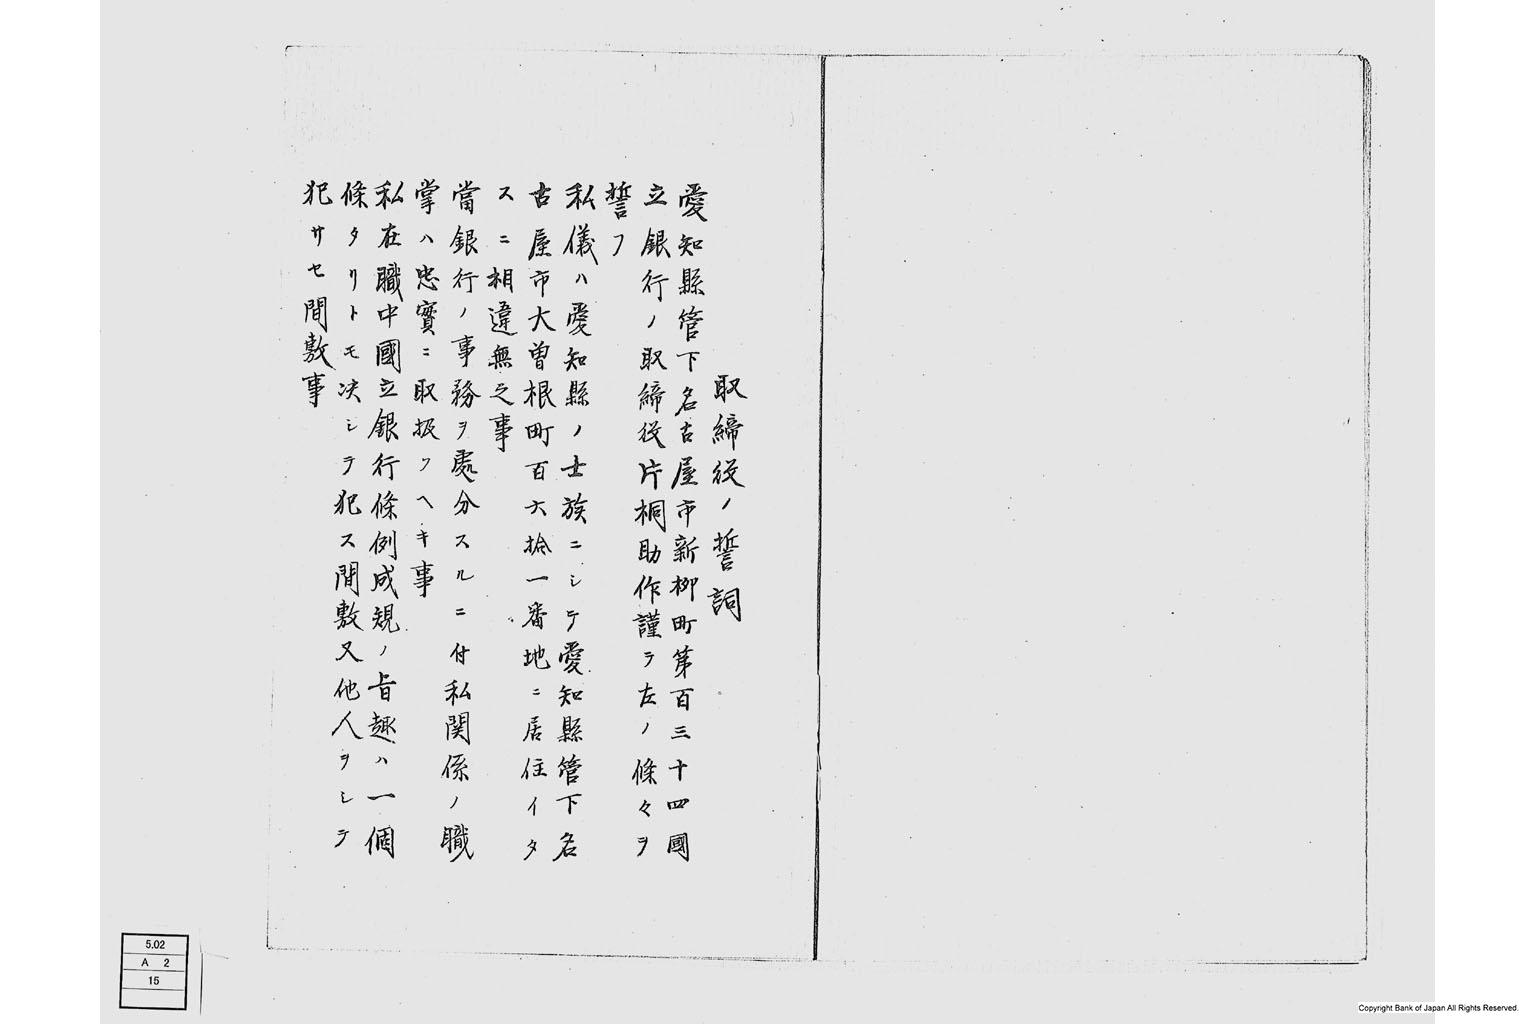 取締役ノ誓詞
愛知縣管下名古屋市新柳町第百三十四國
立銀行ノ取締役片桐助作謹テ左ノ條々ヲ
誓フ
私儀ハ愛知縣ノ士族ニシテ愛知縣管下名
古屋市大曽根町百六拾一番地ニ居住イタ
スニ相違無之事
當銀行ノ事務ヲ處分スルニ付私関係ノ職
掌ハ忠實ニ取扱フヘキ事
私在職中國立銀行條例成規ノ旨趣ハ一個
條タリトモ决シテ犯ス間敷又他人ヲシテ
犯サセ間敷事
5.02
A 2
15
Copyright Bank of Japan All Rights Reserved.